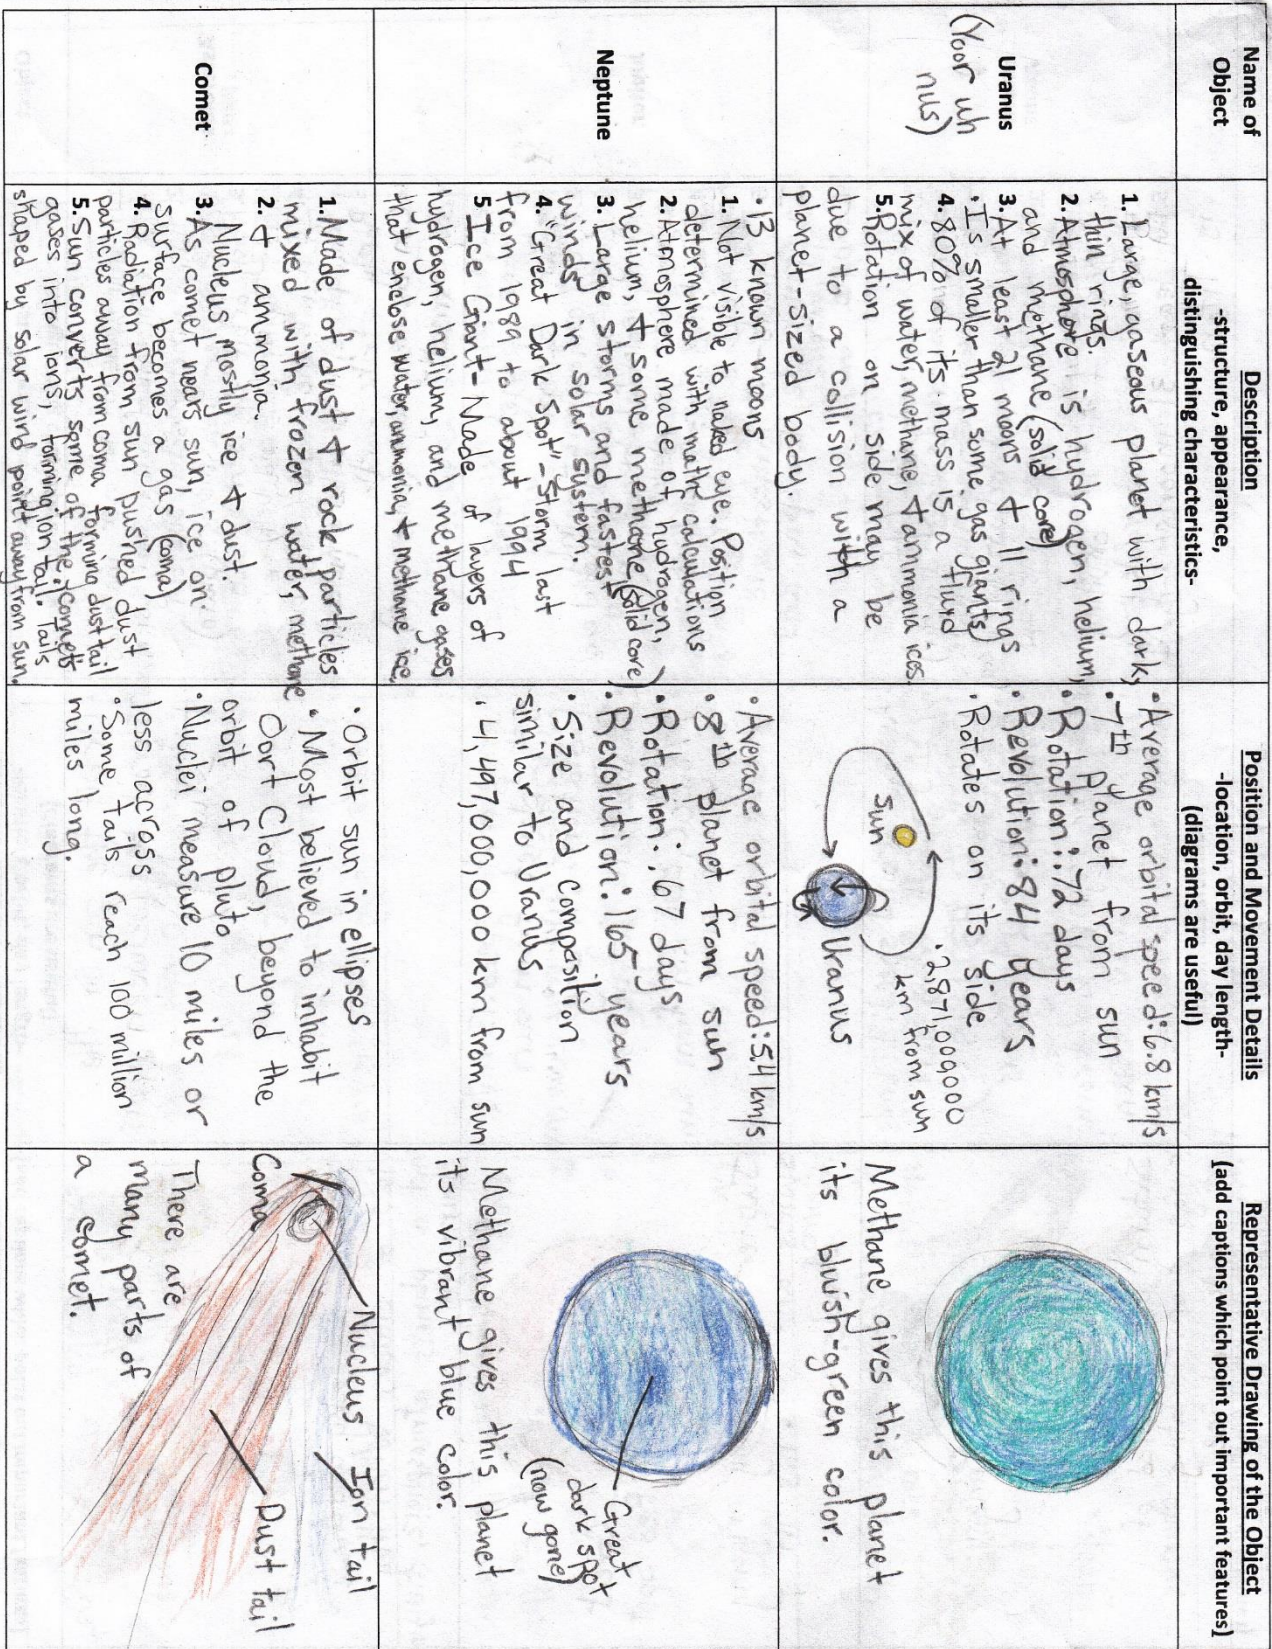 Name of
Object
Description
-structure, appearance,
distinguishing characteristics-
Position and Movement Details
-location, orbit, day length-
(diagrams are useful)
Representative Drawing of the Object
(add captions which point out important features)
Uranus
(Yoor uh
nus)
1. Large, gaseous planet with dark,
thin rings.
2. Atmosphere is hydrogen, helium,
and methane (solid core)
3. At least 21 moons & 11 rings
• Is smaller than some gas giants
4. 80% of its mass is a fluid
mix of water, methane, & ammonia ices.
5. Rotation on side may be
due to a collision with a
planet-sized body.
• Average orbital speed: 6.8 km/s
• 7th planet from sun
• Rotation: .72 days
• Revolution: 84 years
• Rotates on its side
• 2,871,000,000
km from sun
Sun
Uranus
Methane gives this planet
its bluish-green color.
Neptune
• 13 known moons
1. Not visible to naked eye. Position
determined with math calculations
2. Atmosphere made of hydrogen,
helium, & some methane (solid core)
3. Large storms and fastest
winds in solar system.
4. "Great Dark Spot" - Storm last
from 1989 to about 1994
5. Ice Giant - Made of layers of
hydrogen, helium, and methane gases
that enclose water, ammonia, & methane ice.
• Average orbital speed: 5.4 km/s
• 8th planet from sun
• Rotation: .67 days
• Revolution: 165 years
• Size and composition
similar to Uranus
• 4,497,000,000 km from sun
Great
dark spot
(now gone)
Methane gives this planet
its vibrant blue color.
Comet
1. Made of dust & rock particles
mixed with frozen water, methane
2. & ammonia.
• Nucleus mostly ice & dust.
3. As comet nears sun, ice on
surface becomes a gas (coma)
4. Radiation from sun pushed dust
particles away from coma forming dust tail
5. Sun converts some of the comet's
gases into ions, forming ion tail. Tails
shaped by solar wind point away from sun.
• Orbit sun in ellipses
• Most believed to inhabit
Oort Cloud, beyond the
orbit of pluto
• Nuclei measure 10 miles or
less across
• Some tails reach 100 million
miles long.
Nucleus
Ion tail
Coma
Dust tail
There are
many parts of
a comet.